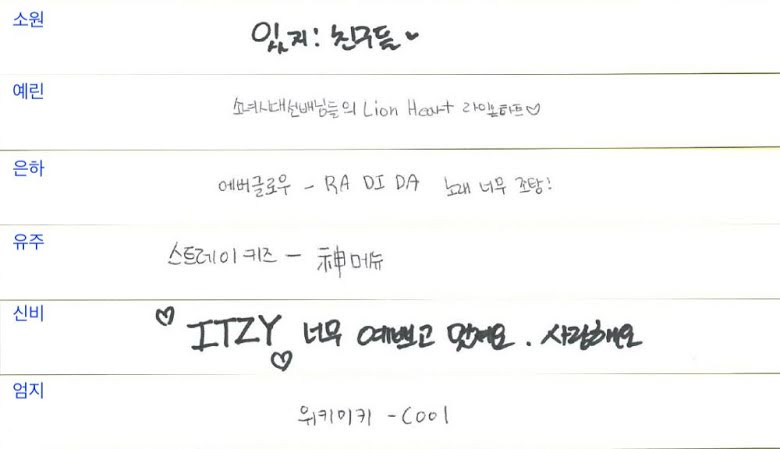 소원
있지! 친구들♥
예린
소녀시대선배님들의 Lion Heart 라일락하트♡
은하
에버글로우 - RA DI DA 노래 너무 조탕!
유주
스트레이키즈 - 神메뉴
신비
♡ ITZY ♡ 너무 예쁘고 멋져요. 사랑해요
엄지
위키미키 - COOL